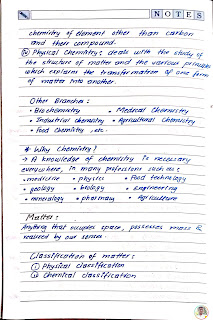 NOTES
chemistry of element other than carbon
and their compound.
iv) Physical chemistry: deals with the study of
the structure of matter and the various principles
which explains the transformation of one form
of matter into another.
Other Branches:
• Biochemistry • Medical Chemistry
• Industrial chemistry • Agricultural Chemistry
• Food chemistry, etc.
# Why Chemistry?
→ A knowledge of chemistry is necessary
everywhere, in many professions such as:
• medicine • physics • Food technology
• geology • biology • Engineering
• mineralogy • pharmacy • Agriculture
Matter:
Anything that occupies space, possesses mass &
realized by our senses.
Classification of matter:
① Physical classification
② Chemical classification